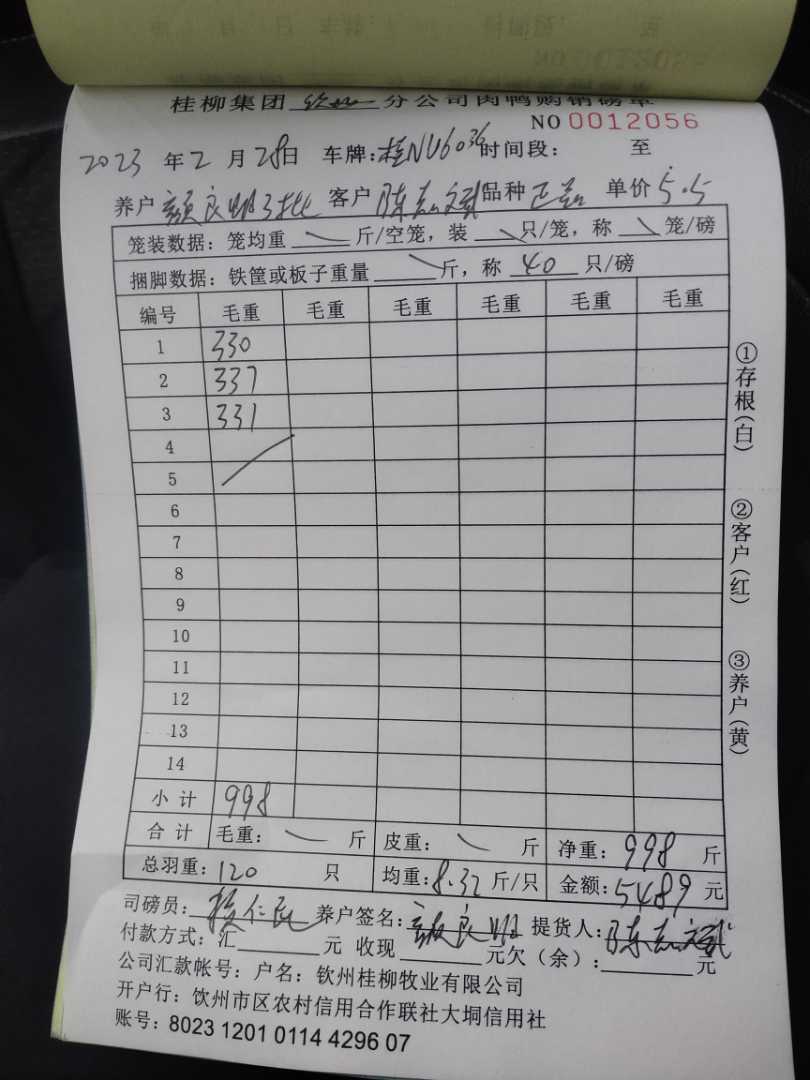 桂柳集团 钦州 分公司肉鸭购销磅单
NO 0012056
2023 年 2 月 28日 车牌：桂NU6036 时间段： 至
养户 颜良 批 客户 陈志斌 品种 正 单价 5.5
笼装数据：笼均重 斤/空笼，装 只/笼，称 笼/磅
捆脚数据：铁筐或板子重量 斤，称 40 只/磅
编号 毛重 毛重 毛重 毛重 毛重 毛重
1 330
2 337
3 331
4
5
6
7
8
9
10
11
12
13
14
小计 998
合计 毛重： 斤 皮重： 斤 净重：998 斤
总羽重：120 只 均重：8.32 斤/只 金额：5489 元
司磅员： 仁 养户签名：颜良 提货人：陈志斌
付款方式：汇 元 收现 元欠（余）： 元
公司汇款帐号：户名：钦州桂柳牧业有限公司
开户行：饮州市区农村信用合作联社大垌信用社
账号：8023 1201 0114 4296 07
①存根（白）
②客户（红）
③养户（黄）